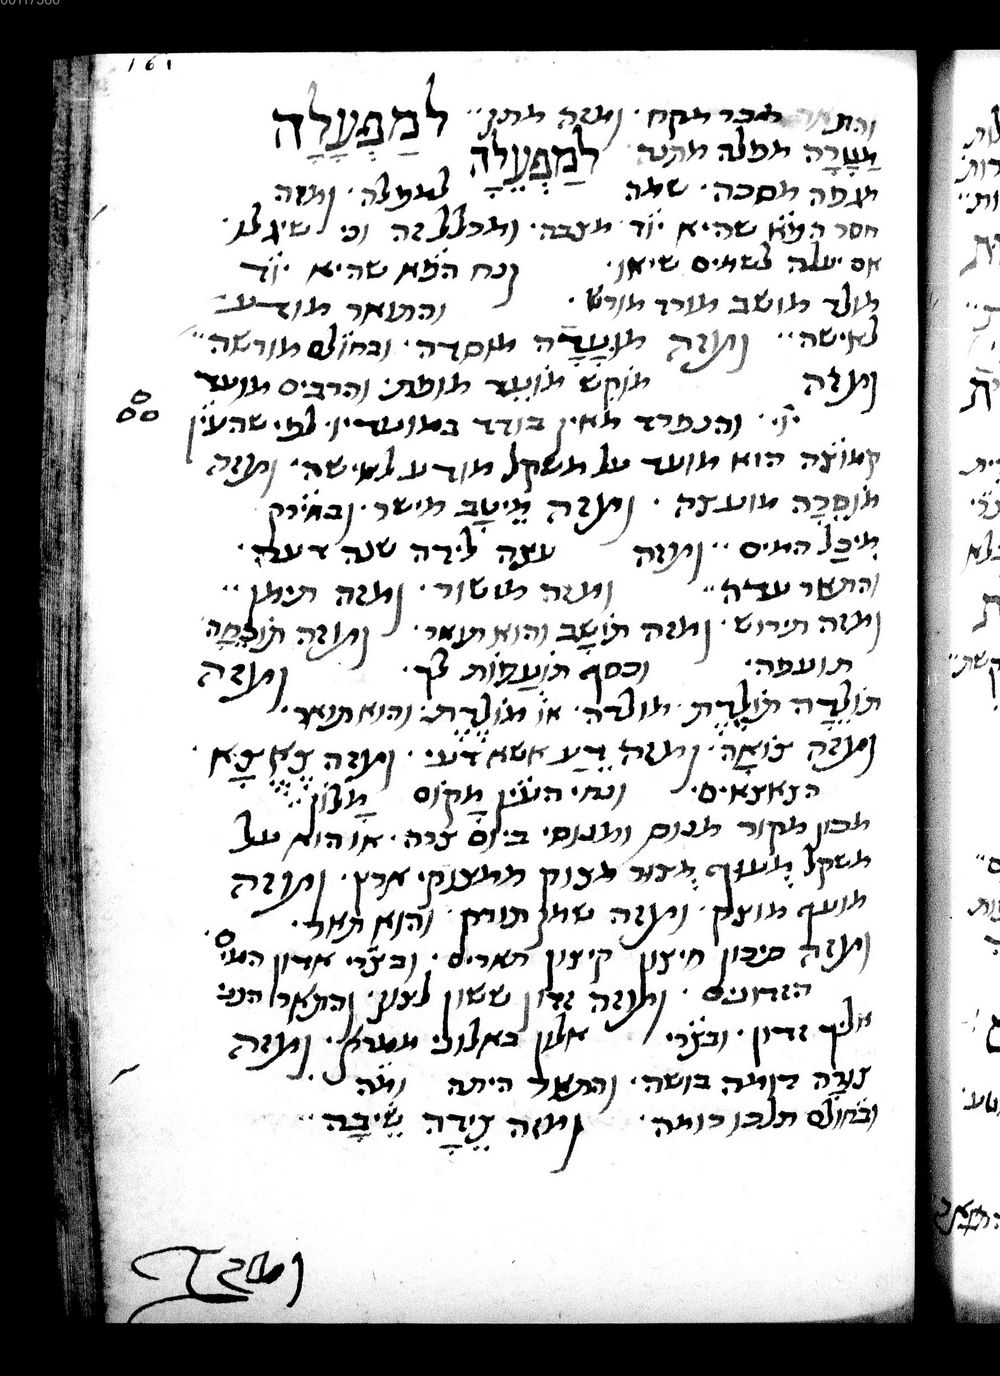 161
והתואר מכר מקח. ומזה מתן.. לְמַפְעָלָה
מַטָּרָה מפלה מתנה. לְמַפְעֵלָה
מגפה מסכה. שמה למפלה. ומזה
חסר הפ״א שהיא יו״ד מצבה. ומכלל זה וכי שיגלו
אם יעלה לשמים שיאו. ונח הפ״א שהיא יו״ד
מולד מושב מורד מורש. והתואר מודע
לאישה.. ומזה מוּעָדָה מוסדה. ובחולם מורשה..
ומזה מוֹקֵשׁ מוֹעֵד מופת: והרבים מועד
י״ו. והנפרד מאין בודד במועדיו. לפי שהעי״ן
קמוצה הוא מועד על משקל מודע לאישה. ומזה
מוֹסֵרָה מועצה. ומזה מֵיטָב מישר. ובחירק
מִיכַל המים.. ומזה עצה לידה שנה דעה.
והתאר עדה.. ומזה מישור. ומזה תימן..
ומזה תירוש. ומזה תוֹשָׁב והוא תואר. ומזה תוֹכֵחָה
תועפה. וכסף תוֹעָפוֹת לך. ומזה
תוֹלֵדָה תוֹלֶדֶת. מולדה. או מוֹלֶדֶת: והוא תואר.
ומזה צוֹאָה. ומזה דֵּעַ אשא דעי. ומזה צֶאֱצָא
הצאצאים. ונחי העי״ן מָקוֹם מָלוֹן
מכון מקור מנוס ומנוסי ביום צרה. או הוא על
משקל מָעוּף מָצוּר מצוק ממצוקי ארץ. ומזה
מועף מוצק. ומזה שמן תורק. והוא תאר.
ומזה סיכון חיצון קיצון תארים. ובצרי אדון המי
הזדונים. ומזה זדון ששון לצון. והתאר הנני
אליך זדון. ובצרי אלון באלוני ממרא. ומזה
צורה דומה בושה. והתאר היתה ומה
ובחולם תלכו רומה. ומזה צֵידָה שֵׂיבָה..
ומזה